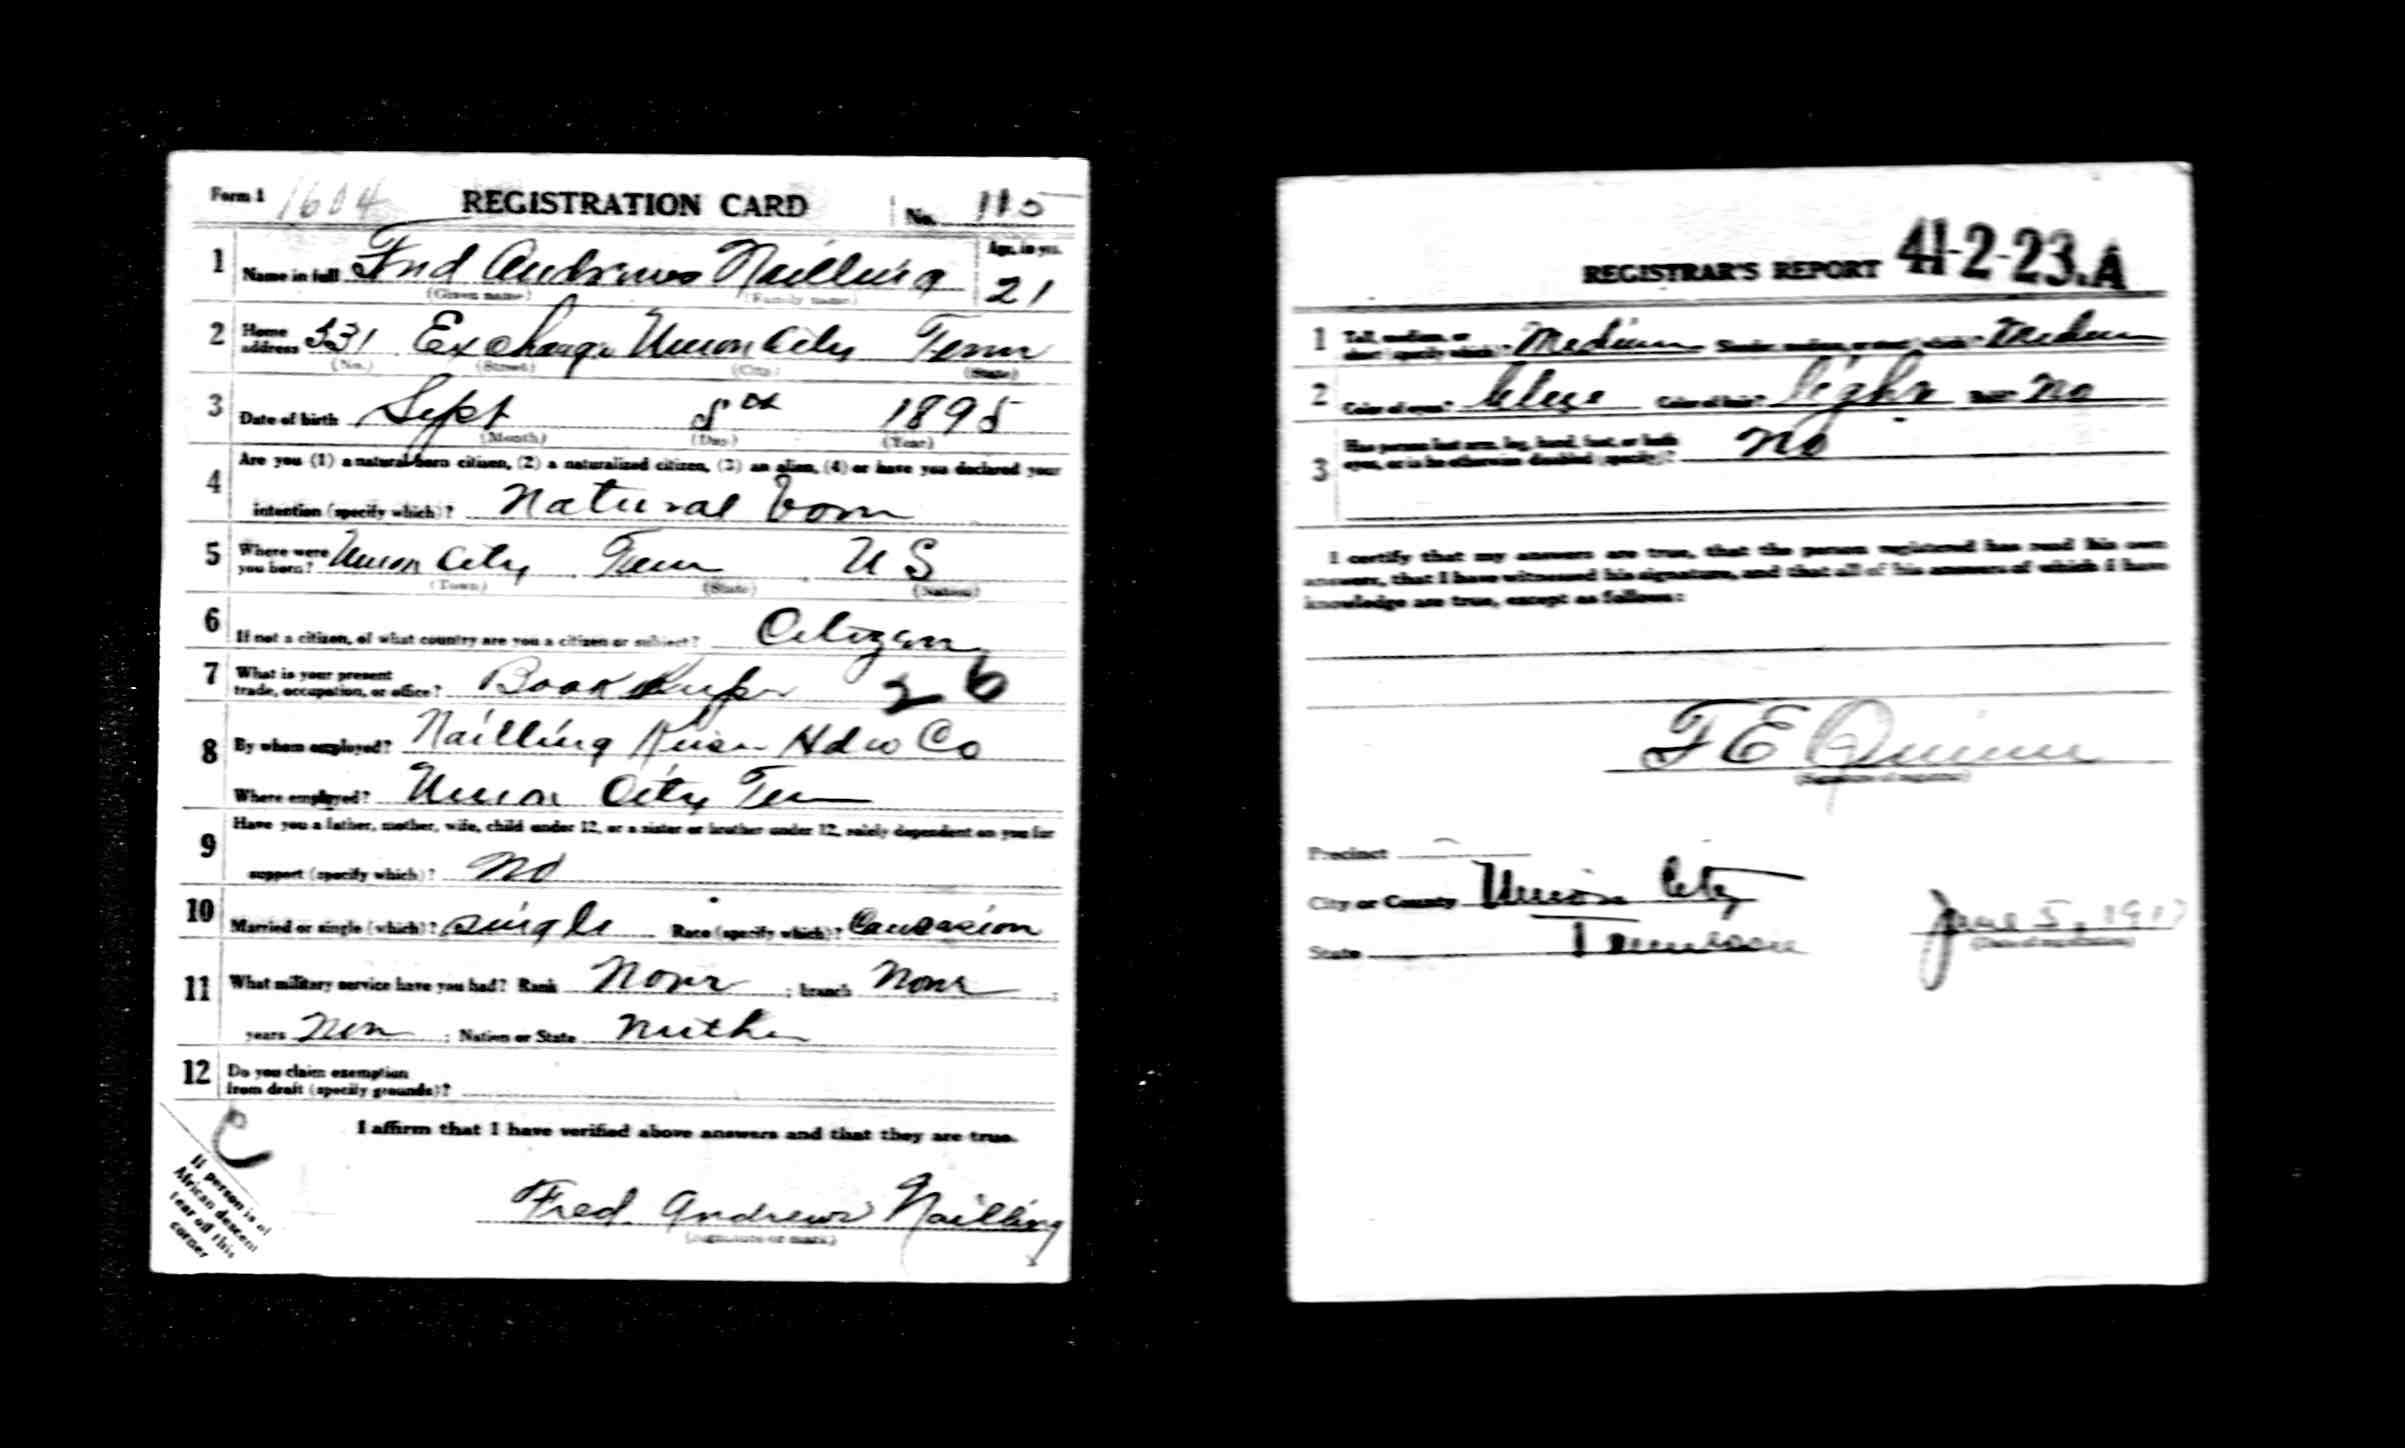 Form 1 1604 REGISTRATION CARD No. 115
1 Name in full Fred Andrews Nailling Age, in yrs. 21
(Given name) (Family name)
2 Home address 331 Exchange Union City Tenn
(No.) (Street) (City) (State)
3 Date of birth Sept 5th 1895
(Month) (Day) (Year)
4 Are you (1) a natural-born citizen, (2) a naturalized citizen, (3) an alien, (4) or have you declared your
intention (specify which)? Natural born
5 Where were you born? Union City Tenn U S
(Town) (State) (Nation)
6 If not a citizen, of what country are you a citizen or subject? Citizen
7 What is your present trade, occupation, or office? Book Keeper 26
8 By whom employed? Nailling Hdw Co
Where employed? Union City Ten
9 Have you a father, mother, wife, child under 12, or a sister or brother under 12, solely dependent on you for
support (specify which)? No
10 Married or single (which)? Single Race (specify which)? Caucasion
11 What military service have you had? Rank None ; branch None ;
years Non ; Nation or State
12 Do you claim exemption
from draft (specify grounds)?
I affirm that I have verified above answers and that they are true.
C
If person is of
African descent
tear off this
corner
Fred Andrews Nailling
(Signature or mark)
REGISTRAR'S REPORT 41-2-23.A
1 Tall, medium, or short (specify which)? Medium Slender, medium, or stout (which)? Medium
2 Color of eyes? blue Color of hair? light Bald? No
3 Has person lost arm, leg, hand, foot, or both
eyes, or is he otherwise disabled (specify)? No
I certify that my answers are true, that the person registered has read his own
answers, that I have witnessed his signature, and that all of his answers of which I have
knowledge are true, except as follows:
F E Quinn
(Signature of registrar)
Precinct
City or County Union City
State Tennessee June 5, 1917
(Date of registration)